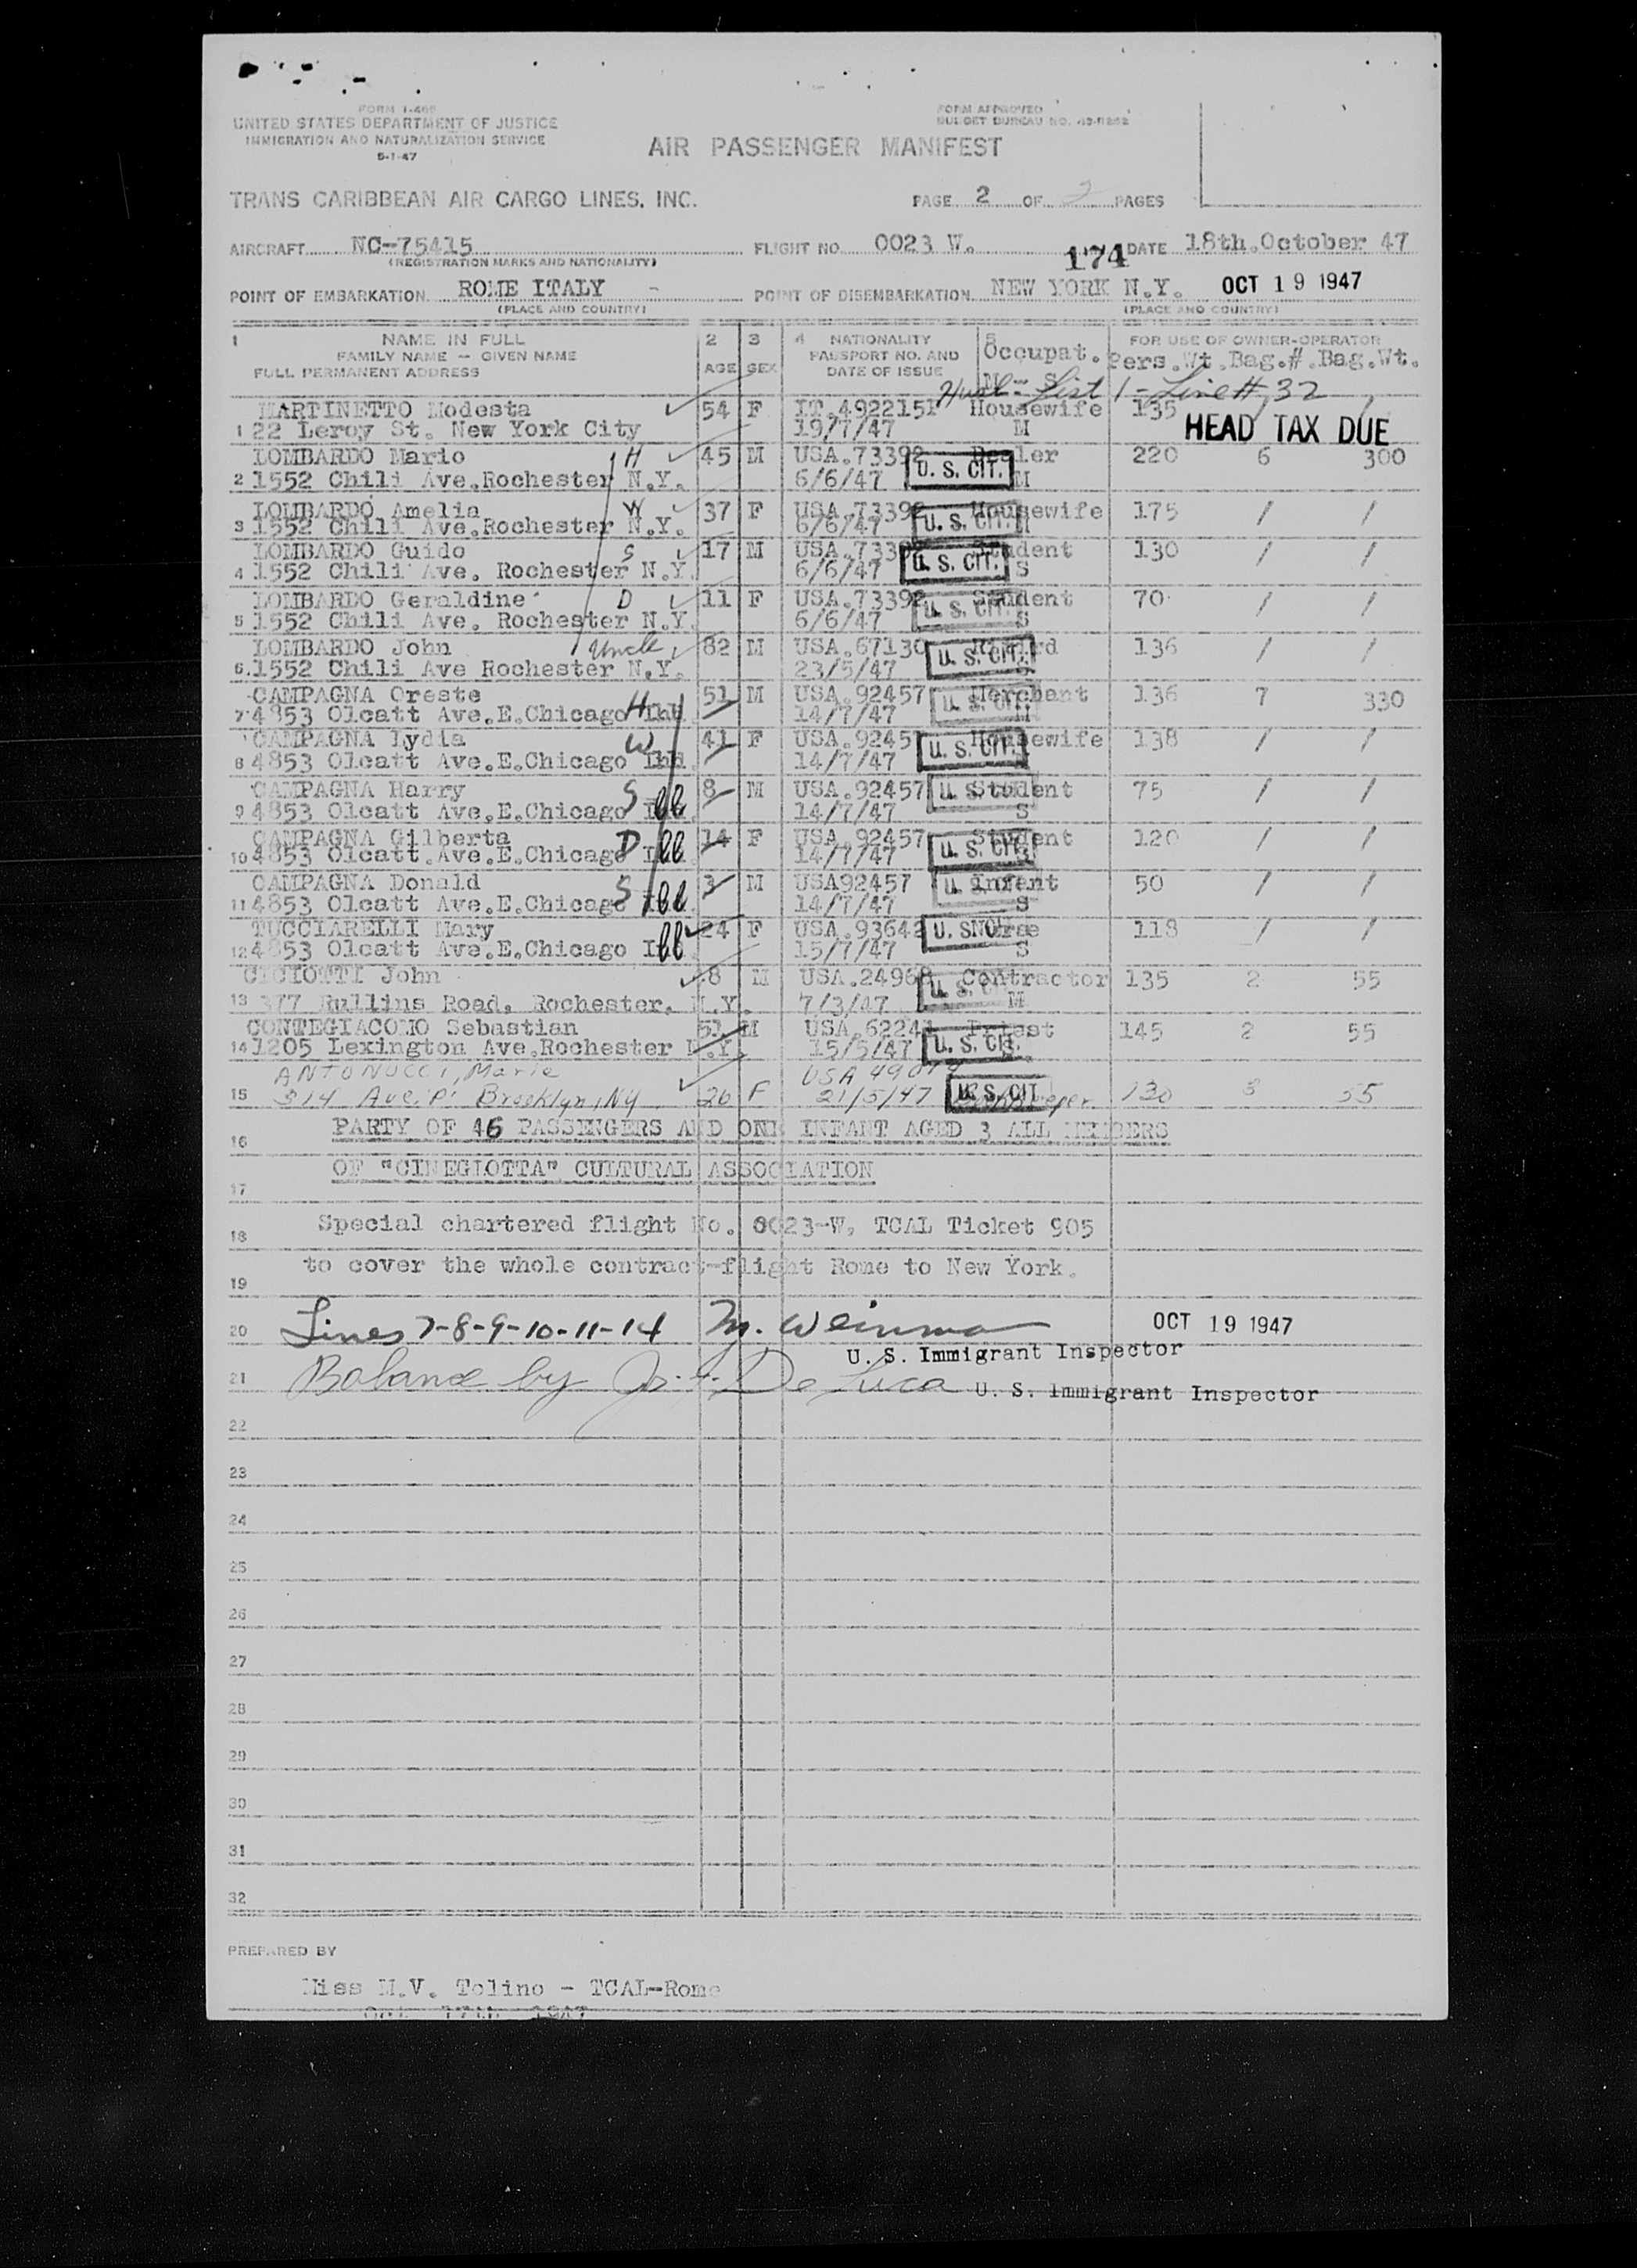 FORM I-466
UNITED STATES DEPARTMENT OF JUSTICE
IMMIGRATION AND NATURALIZATION SERVICE
5-1-47
FORM APPROVED
BUDGET BUREAU NO. 43-R262
AIR PASSENGER MANIFEST
TRANS CARIBBEAN AIR CARGO LINES, INC.
PAGE 2 OF 2 PAGES
AIRCRAFT NC-75415 FLIGHT NO. 0023 W. 174 DATE 18th.October 47
(REGISTRATION MARKS AND NATIONALITY)
POINT OF EMBARKATION ROME ITALY - POINT OF DISEMBARKATION NEW YORK N.Y. OCT 19 1947
(PLACE AND COUNTRY) (PLACE AND COUNTRY)
1 NAME IN FULL 2 3 4 NATIONALITY 5 FOR USE OF OWNER-OPERATOR
FAMILY NAME — GIVEN NAME PASSPORT NO. AND Occupat. Pers.Wt.Bag.#.Bag.Wt.
FULL PERMANENT ADDRESS AGE SEX DATE OF ISSUE M - S
Husb - List 1 - Line # 32
MARTINETTO Modesta 54 F IT.492215P Housewife 135 / /
1 22 Leroy St. New York City 19/7/47 M HEAD TAX DUE
LOMBARDO Mario H 45 M USA.73392 Dealer 220 6 300
2 1552 Chili Ave.Rochester N.Y. 6/6/47 U. S. CIT. M
LOMBARDO Amelia W 37 F USA.73392 Housewife 175 / /
3 1552 Chili Ave.Rochester N.Y. 6/6/47 U. S. CIT.
LOMBARDO Guido S 17 M USA.73392 Student 130 / /
4 1552 Chili Ave. Rochester N.Y. 6/6/47 U. S. CIT. S
LOMBARDO Geraldine D 11 F USA.73392 Student 70 / /
5 1552 Chili Ave. Rochester N.Y. 6/6/47 U. S. CIT. S
LOMBARDO John Uncle 82 M USA.67130 Retired 136 / /
6 1552 Chili Ave Rochester N.Y. 23/5/47 U. S. CIT.
CAMPAGNA Oreste H 51 M USA.92457 Merchant 136 7 330
7 4853 Olcatt Ave.E.Chicago Ind. 14/7/47 U. S. CIT.
CAMPAGNA Lydia W 41 F USA.92457 Housewife 138 / /
8 4853 Olcatt Ave.E.Chicago Ind. 14/7/47 U. S. CIT.
CAMPAGNA Harry S 8 M USA.92457 Student 75 / /
9 4853 Olcatt Ave.E.Chicago 14/7/47 U. S. CIT. S
CAMPAGNA Gilberta D 14 F USA.92457 Student 120 / /
10 4853 Olcatt.Ave.E.Chicago 14/7/47 U. S. CIT.
CAMPAGNA Donald S 3 M USA92457 Infant 50 / /
11 4853 Olcatt Ave.E.Chicago 14/7/47 U. S. S
TUCCIARELLI Mary 24 F USA.93642 U. S. Nurse 118 / /
12 4853 Olcatt Ave.E.Chicago 15/7/47 S
CICIOTTI John 8 M USA.24968 Contractor 135 2 55
13 377 Rullins Road, Rochester, N.Y. 7/3/47 U. S. M
CONTEGIACOMO Sebastian 51 M Priest 145 2 55
14 1205 Lexington Ave.Rochester N.Y. 15/5/47 U. S. CIT.
ANTONUCCI, Marie USA
15 314 Ave. P. Brooklyn, NY 26 F 21/5/47 U. S. CIT 130 3 55
16 PARTY OF 46 PASSENGERS AND ONE INFANT AGED 3 ALL MEMBERS
17 OF "CINEGIOTTA" CULTURAL ASSOCIATION
18 Special chartered flight No. 0023-W, TCAL Ticket 905
19 to cover the whole contract-flight Rome to New York.
20 Lines 7-8-9-10-11-14 M. Weinman OCT 19 1947
U. S. Immigrant Inspector
21 Balance by De Luca U. S. Immigrant Inspector
22
23
24
25
26
27
28
29
30
31
32
PREPARED BY
Miss M.V. Tolino - TCAL-Rome
Oct 17th 1947